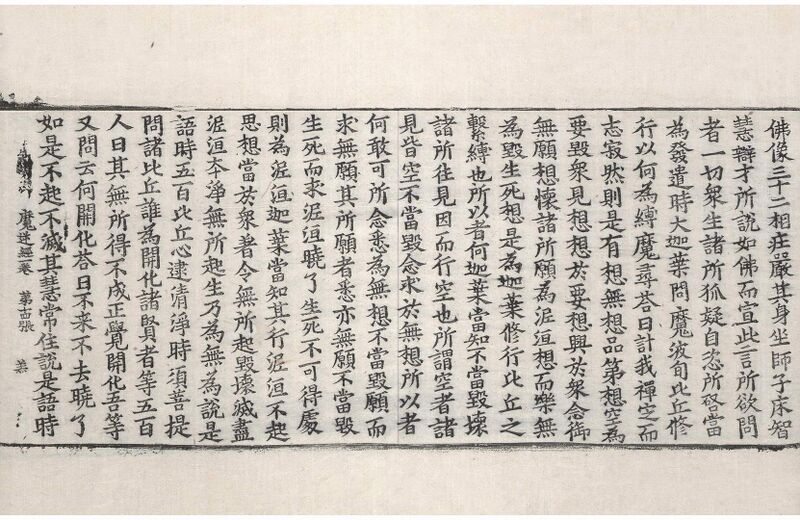 佛像三十二相莊嚴其身坐師子床智
慧辯才所說如佛而宣此言所欲問
者一切衆生諸所狐疑自恣所啓當
為發遣時大迦葉問魔波旬比丘修
行以何為縛魔尋荅曰計我禪空而
志寂然則是有想無想品第想空為
要毀衆見想想於要想興於衆念御
無願想懷諸所願為泥洹想而樂無
為毀生死想是為迦葉修行比丘之
繫縛也所以者何迦葉當知不當毀壞
諸所往見因而行空也所謂空者諸
見皆空不當毀念求於無想所以者
何敢可所念悉為無想不當毀願而
求無願其所願者悉亦無願不當毀
生死而求泥洹曉了生死不可得處
則為泥洹迦葉當知其行泥洹不起
思想當於衆者令無所起毀壞滅盡
泥洹夲淨無所起生乃為無為說是
語時五百比丘心逮清淨時須菩提
問諸比丘誰為開化諸賢者等五百
人曰其無所得不成正覺開化吾等
又問云何開化荅曰不来不去曉了
如是不起不滅其慧常住說是語時
魔逆經卷 苐古張